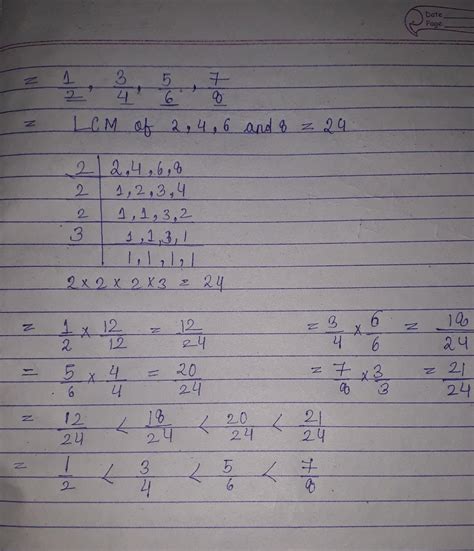 Date
Page
= 1/2, 3/4, 5/6, 7/8
= LCM of 2, 4, 6 and 8 = 24
2 | 2, 4, 6, 8
2 | 1, 2, 3, 4
2 | 1, 1, 3, 2
3 | 1, 1, 3, 1
| 1, 1, 1, 1
2 × 2 × 2 × 3 = 24
= 1/2 × 12/12 = 12/24 = 3/4 × 6/6 = 18/24
= 5/6 × 4/4 = 20/24 = 7/8 × 3/3 = 21/24
= 12/24 < 18/24 < 20/24 < 21/24
= 1/2 < 3/4 < 5/6 < 7/8